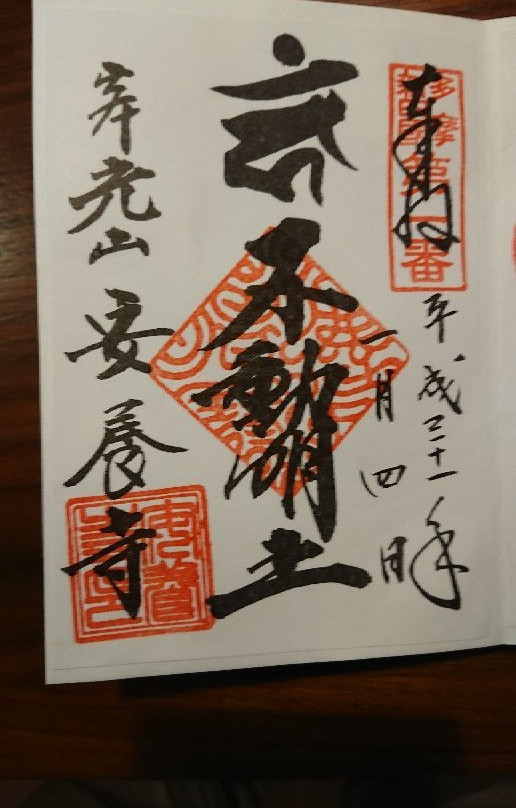 奉拝
多摩
第一番
平成三十一年
一月四日
不動明王
寿光山 安養寺
安養寺